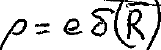 ρ = e δ(R̄)